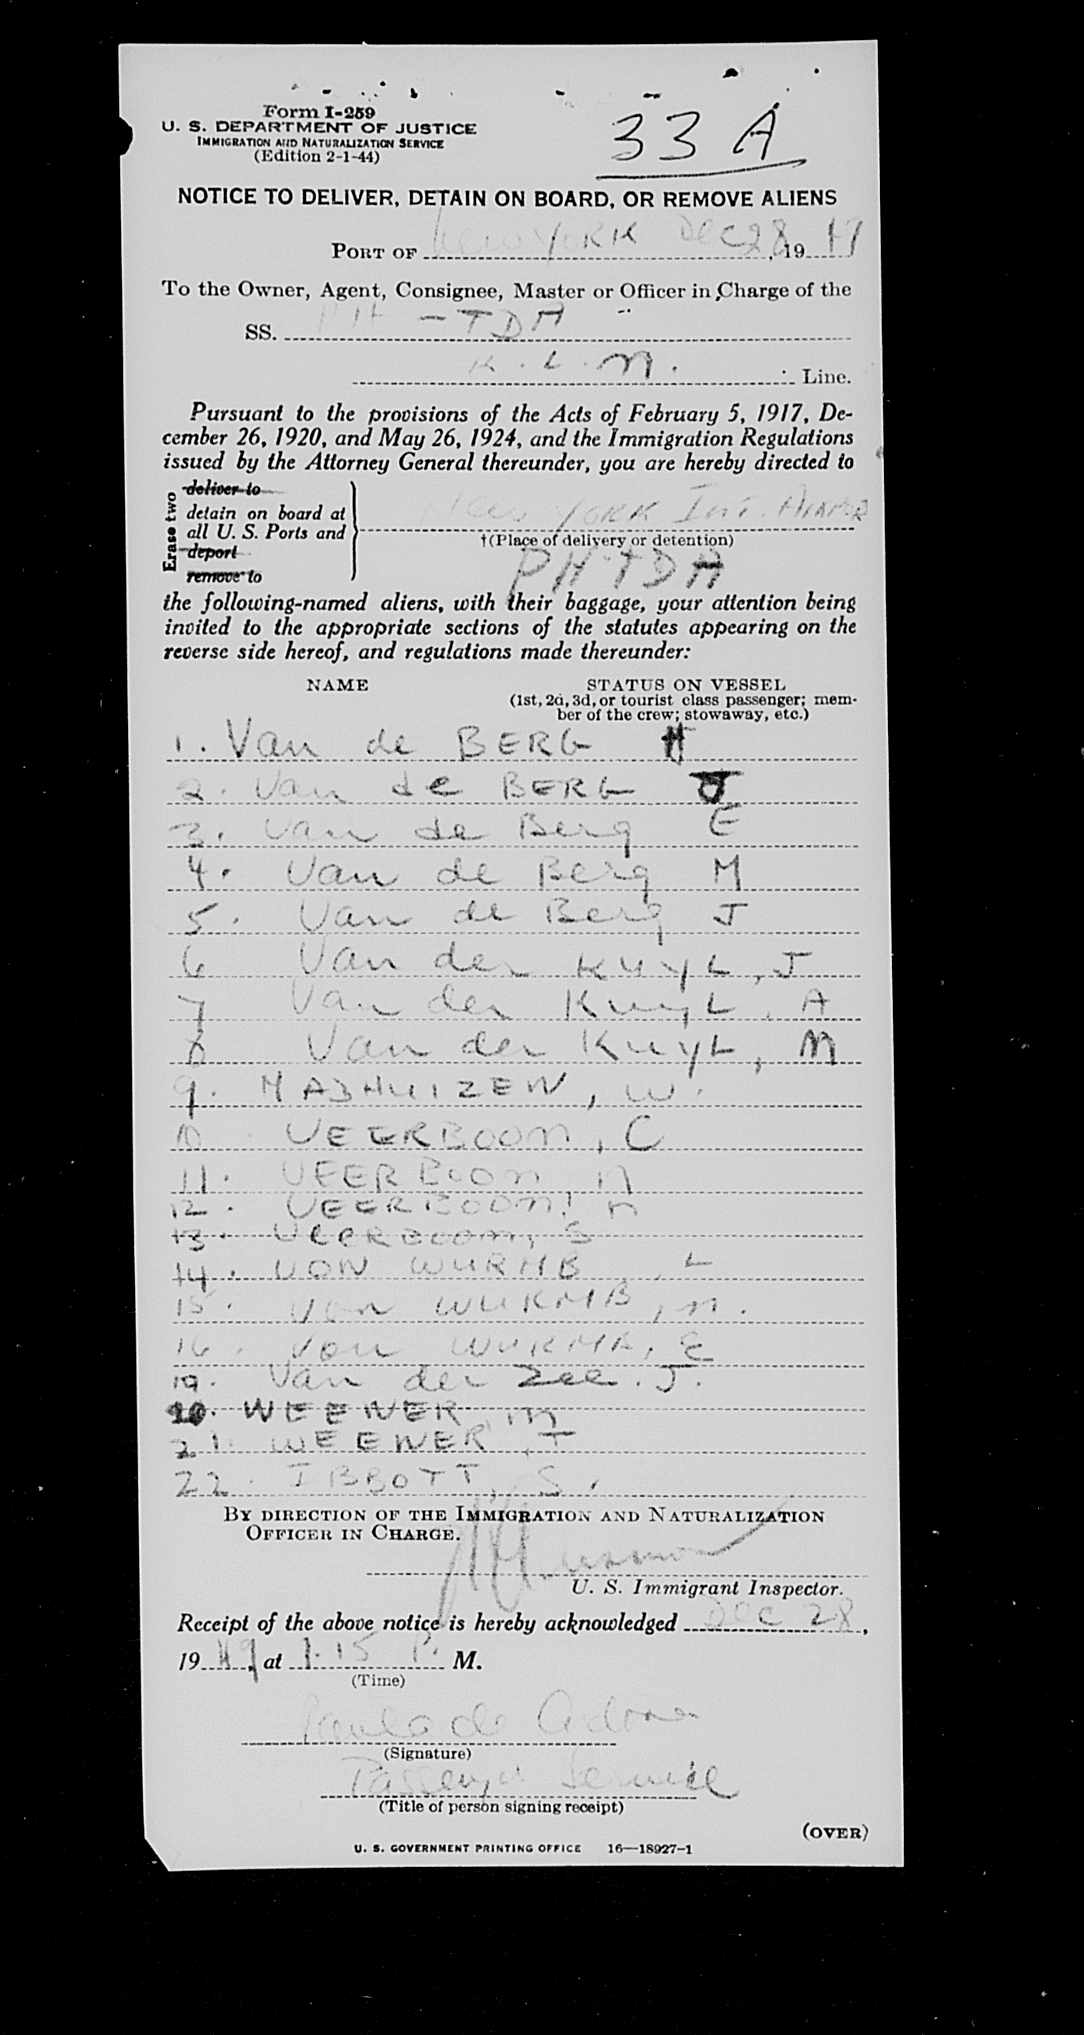 Form I-259
33 A
U. S. DEPARTMENT OF JUSTICE
IMMIGRATION AND NATURALIZATION SERVICE
(Edition 2-1-44)
NOTICE TO DELIVER, DETAIN ON BOARD, OR REMOVE ALIENS
PORT OF New YORK Dec 28, 19
To the Owner, Agent, Consignee, Master or Officer in Charge of the
SS. PH-TDA
K. L. M. Line.
Pursuant to the provisions of the Acts of February 5, 1917, De-
cember 26, 1920, and May 26, 1924, and the Immigration Regulations
issued by the Attorney General thereunder, you are hereby directed to
Erase two
deliver to
detain on board at
all U. S. Ports and
deport
remove to
New YORK Int.
†(Place of delivery or detention)
PH-TDA
the following-named aliens, with their baggage, your attention being
invited to the appropriate sections of the statutes appearing on the
reverse side hereof, and regulations made thereunder:
NAME STATUS ON VESSEL
(1st, 2d, 3d, or tourist class passenger; mem-
ber of the crew; stowaway, etc.)
1. Van de BERG H
2. Van de BERG J
3. Van de Berg E
4. Van de Berg M
5. Van de Berg J
6 Van der KUYL, J
7 Van der KuyL, A
8 Van der KuyL, M
9. , W.
10 VEERBOOM, C
11. VEERBOOM
12. VEERBOOM,
13. VEERBOOM, S
14. VON WURMB, L
15. Von WURMB, M.
16. Von WURMB, E
19. Van der Zee. J.
20. WEENER, M
21. WEENER, T
22. IBBOTT, S.
BY DIRECTION OF THE IMMIGRATION AND NATURALIZATION
OFFICER IN CHARGE.
U. S. Immigrant Inspector.
Receipt of the above notice is hereby acknowledged Dec 28,
1949, at 1.15 P. M.
(Time)
(Signature)
Passenger Service
(Title of person signing receipt)
(OVER)
U. S. GOVERNMENT PRINTING OFFICE 16—18927-1